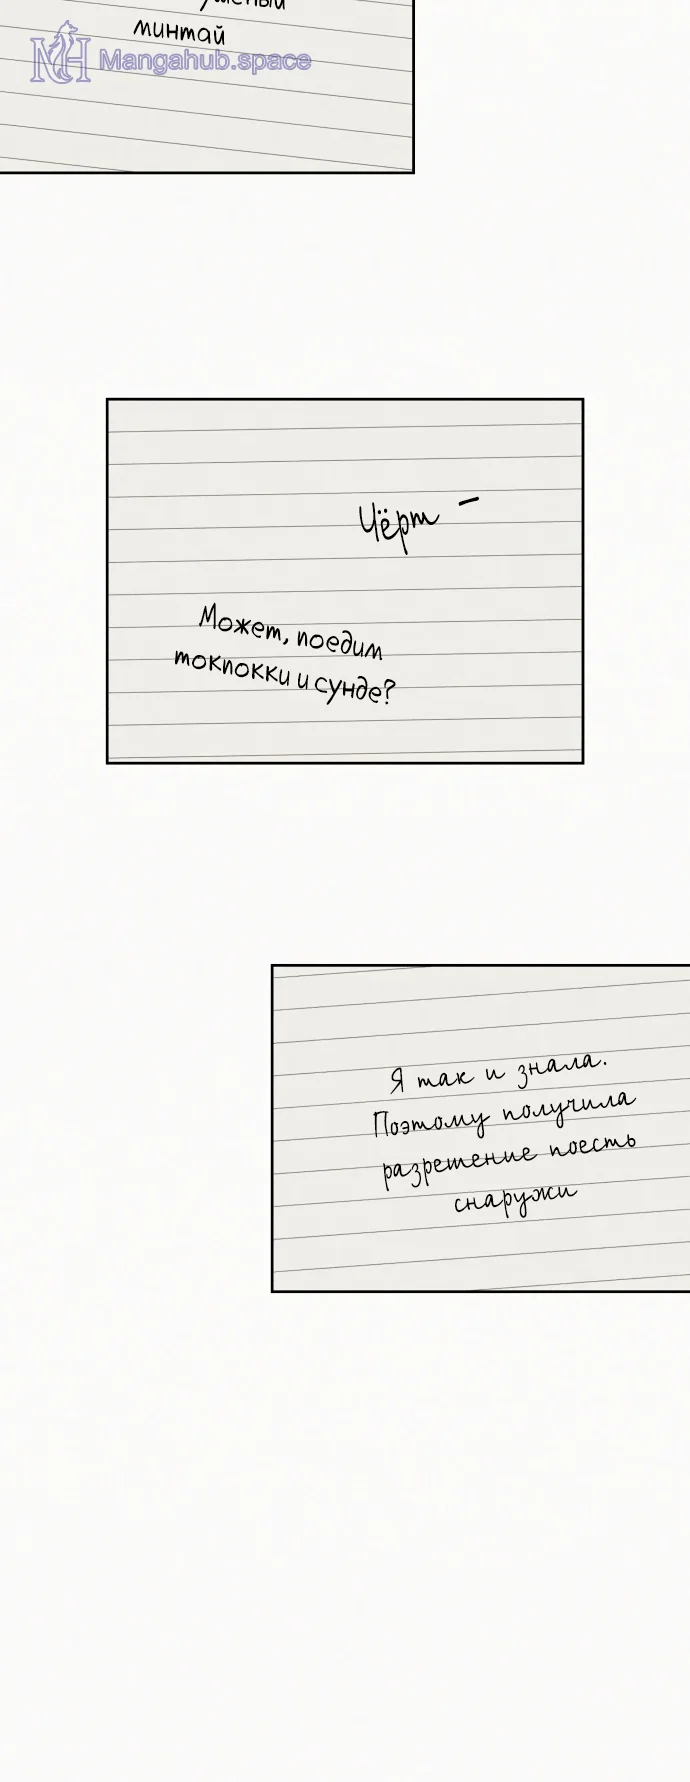 минтай
Mangahub.space
Чёрт -
Может, поедим
токпокки и сунде?
Я так и знала.
Поэтому получила
разрешение поесть
снаружи